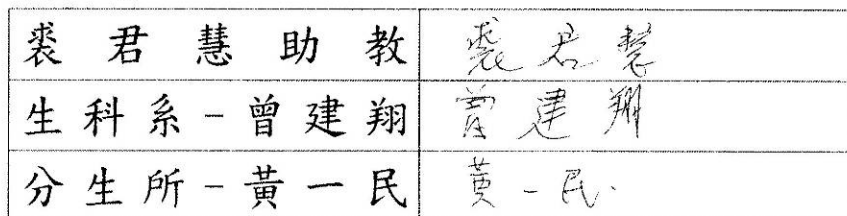 裘君慧助教 裘君慧
生科系-曾建翔 曾建翔
分生所-黃一民 黃一民.